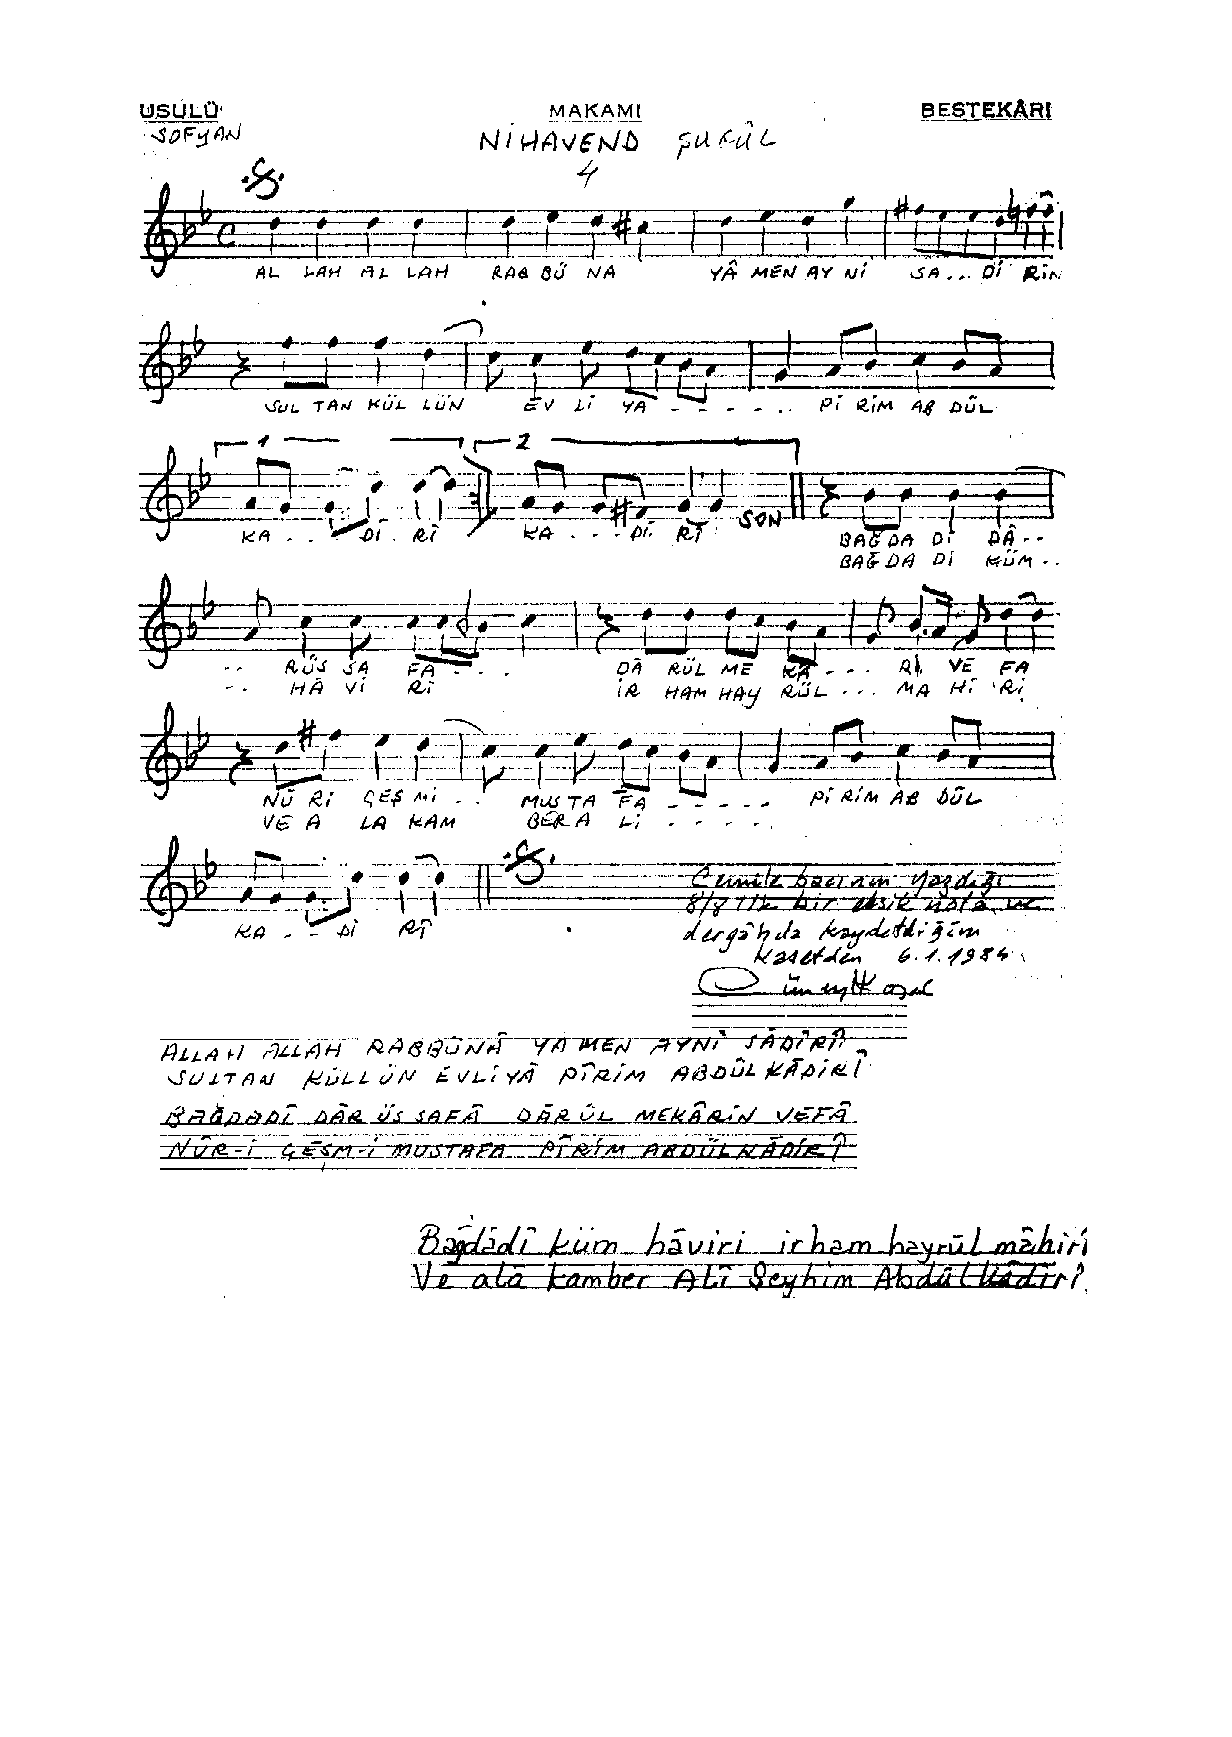 USÛLÜ MAKAMI BESTEKÂRI
SOFYAN NİHAVEND ŞUĞÛL
4
AL LAH AL LAH RAB BÜ NA YÂ MEN AY NÎ SA... Dİ RİN
SUL TAN KÜL LÜN EV Lİ YA - - - - - .. Pİ RİM AB DÜL
1 2
KA - .. Dİ . RÎ KA - .. - Dİ. RÎ SON BAĞ DA Dİ DÂ--
BAĞ DA Dİ KÜM-..
-- RÜS SA FA - - . . DÂ RÜL ME KA - - . . Rİ VE FA
-- HÂ Vİ Rİ İR HAM HAY RÜL - .. MA Hİ Rİ
NÛ Rİ ÇEŞ Mİ - .. MUS TA FA - - - - - Pİ RİM AB DÜL
VE A LA KAM BER A Lİ - - - - -
KA - - Dİ RÎ
Cemile bacının yazdığı
8/8 lik bir eksik nota ve
dergâhda kaydetdiğim
kasetden 6.1.1984
Cüneyt Kosal
ALLAH ALLAH RABBÜNÂ YA MEN AYNÎ SÂDİRÎ
SULTAN KÜLLÜN EVLİYÂ PÎRİM ABDÜLKÂDİRÎ
BAĞDADÎ DÂR ÜS SAFÂ DÂRÜL MEKÂRİN VEFÂ
NÛR-İ ÇEŞM-İ MUSTAFA PÎRİM ABDÜLKÂDİRÎ
Bağdâdî küm hâviri irham hayrül mâhirî
Ve alâ kamber Alî Şeyhim Abdülkâdirî